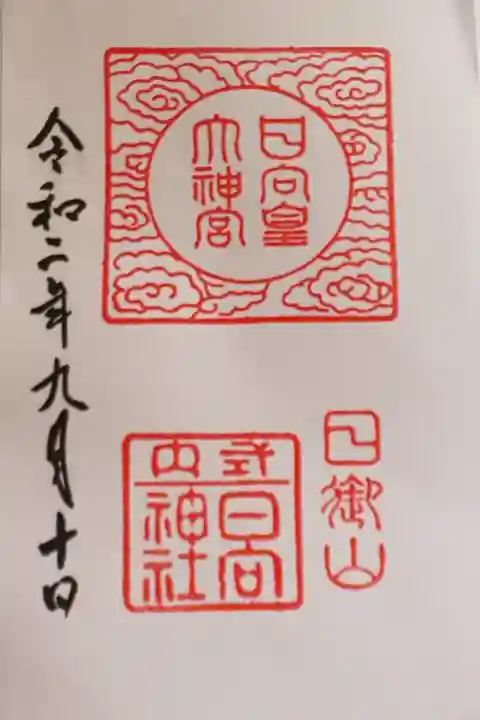 日向皇
大神宮
日御山
式内
日向
神社
令和二年九月十日